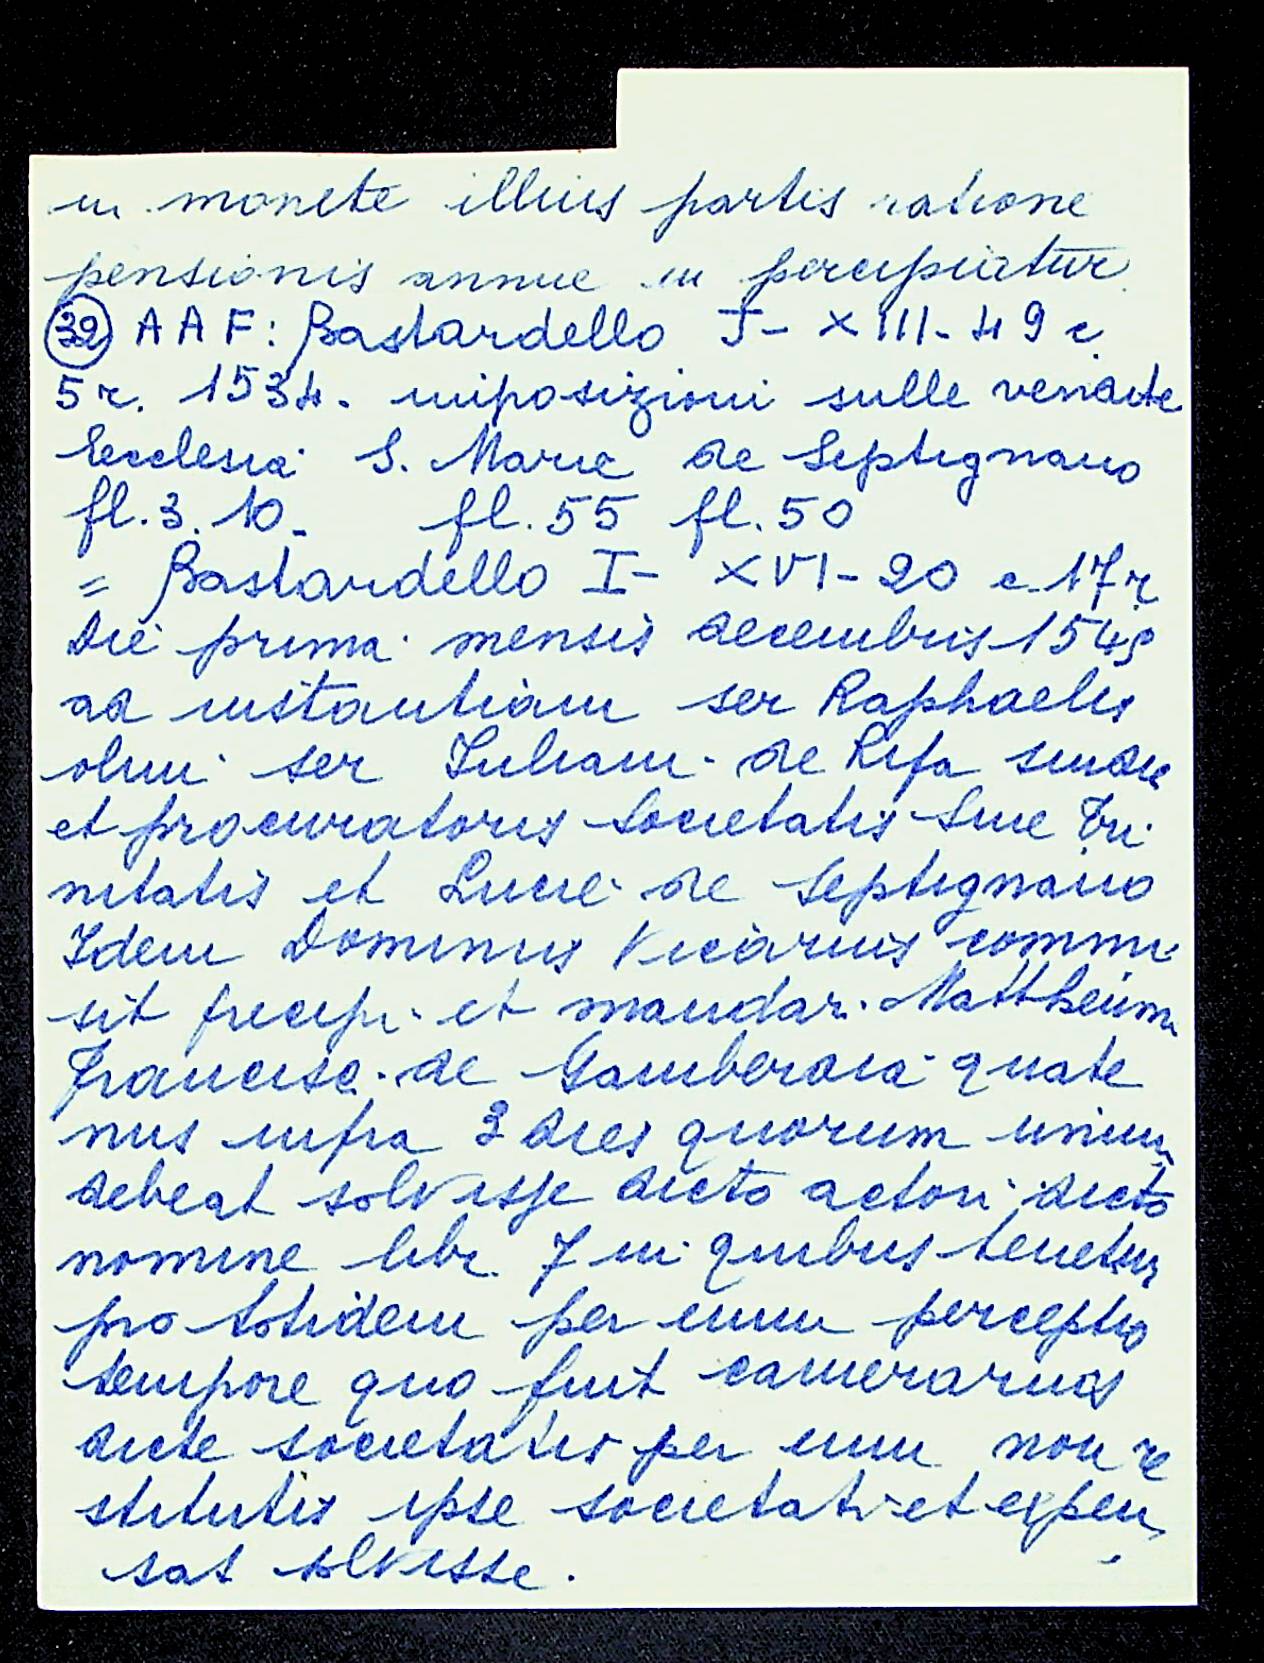 in monete illius partis ratione
pensionis annue in percipiatur
(32) A A F: Bastardello I- XIII- 49 c
5 r. 1534. imposizioni sulle
Ecclesia S. Marie de Septignano
fl. 3. 10. fl. 55 fl. 50
= Bastardello I- XVI- 20 c. 17 r
Die prima mensis decembris 1549
ad instantiam ser Raphaelis
olim ser Juliani de Rifa sindici
et procuratoris Societatis Sme Tri
nitatis et Lucie de Septignano
Idem Dominus Vicarius commi
sit precepi. et mandar. Mattheum
Francisc. de Gamberaia quate
nus infra 3 dies quorum unum
debeat solvisse dicto actori dicto
nomine libr. 7 in quibus tenetur
pro totidem per eum perceptis
tempore quo fuit camerarius
dicte societatis per eum non re
stitutis ipse societati et expen
sas solvisse.